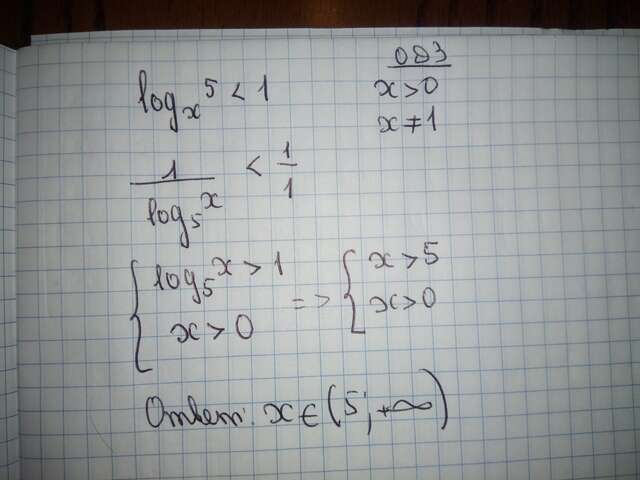 ОДЗ
log_x 5 < 1
x > 0
x ≠ 1
1/log_5 x < 1/1
{ log_5 x > 1 => { x > 5
x > 0 x > 0
Ответ: x ∈ (5; +∞)